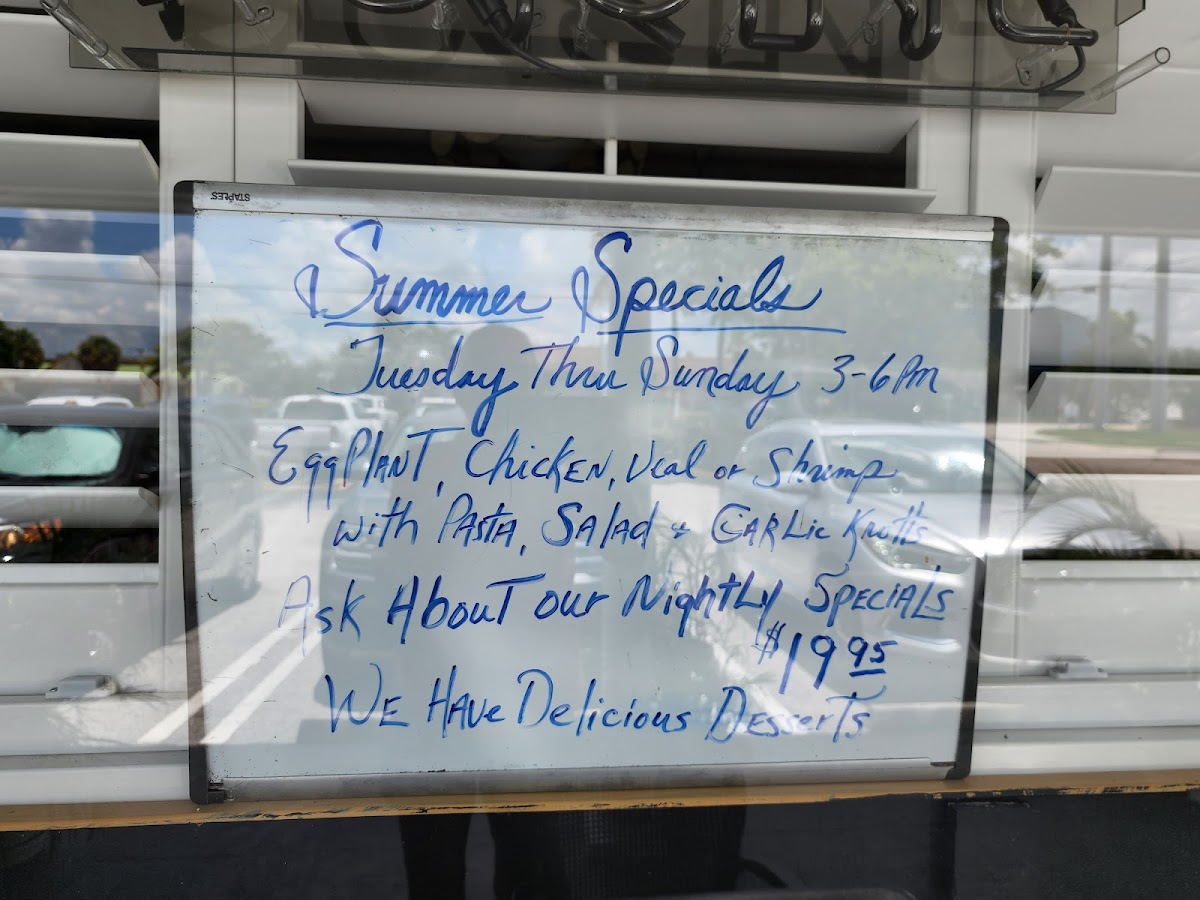 STAPLES
Summer Specials
Tuesday Thru Sunday 3-6PM
EggPlANT, ChickEN, Veal or Shrimp
with PASTA, SAlad + GARLic Knotts
Ask AbouT our NightLy SPECIALS
$19 95
WE HAVe Delicious DessertS